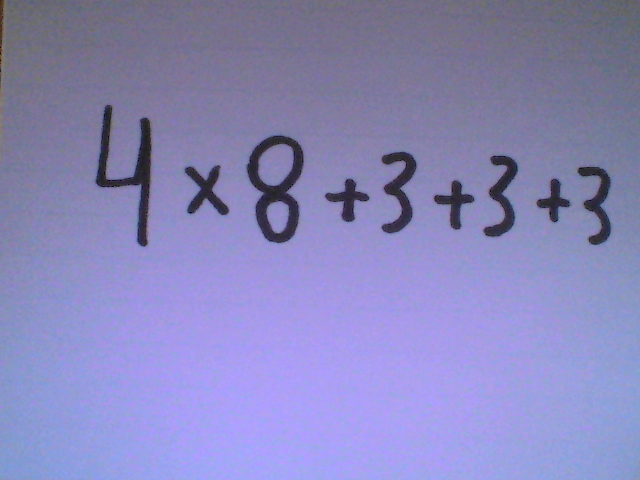 4 × 8 + 3 + 3 + 3